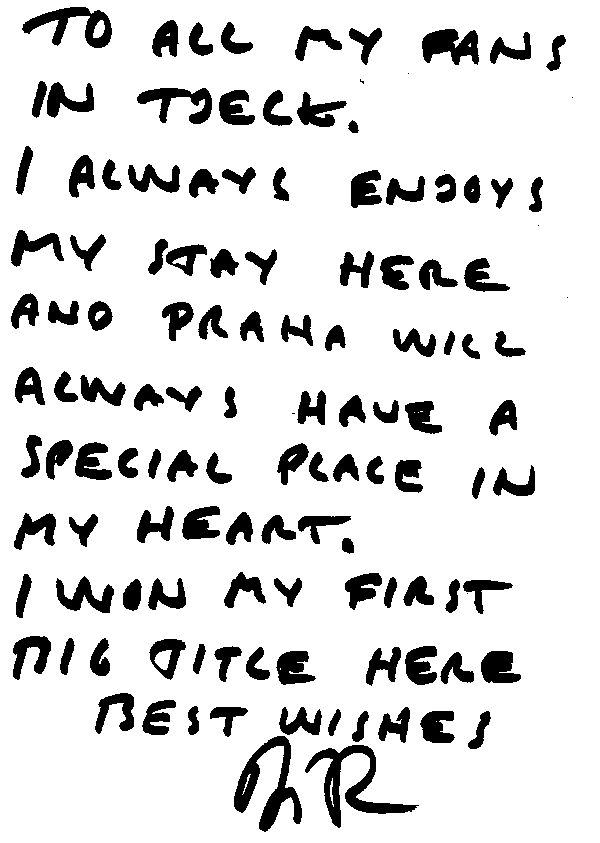 TO ALL MY FANS
IN TJECK.
I ALWAYS ENJOYS
MY STAY HERE
AND PRAHA WILL
ALWAYS HAVE A
SPECIAL PLACE IN
MY HEART.
I WON MY FIRST
BIG TITLE HERE
BEST WISHES